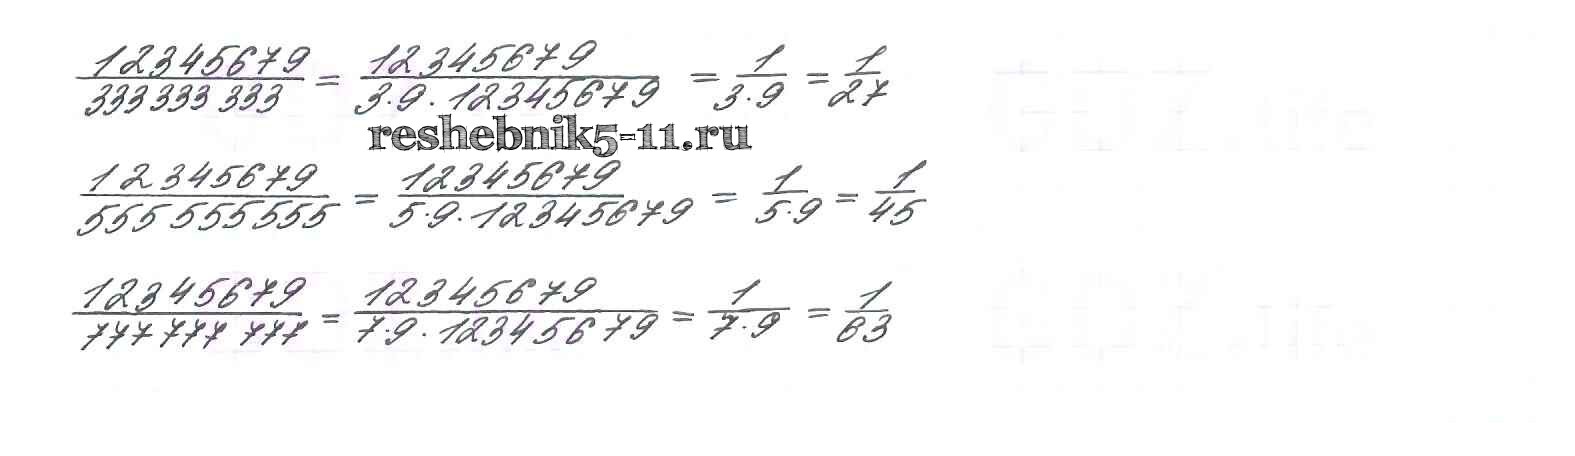 12345679/333 333 333 = 12345679/3·9·12345679 = 1/3·9 = 1/27
reshebnik5-11.ru
12345679/555 555555 = 12345679/5·9·12345679 = 1/5·9 = 1/45
12345679/777 777 777 = 12345679/7·9·12345679 = 1/7·9 = 1/63